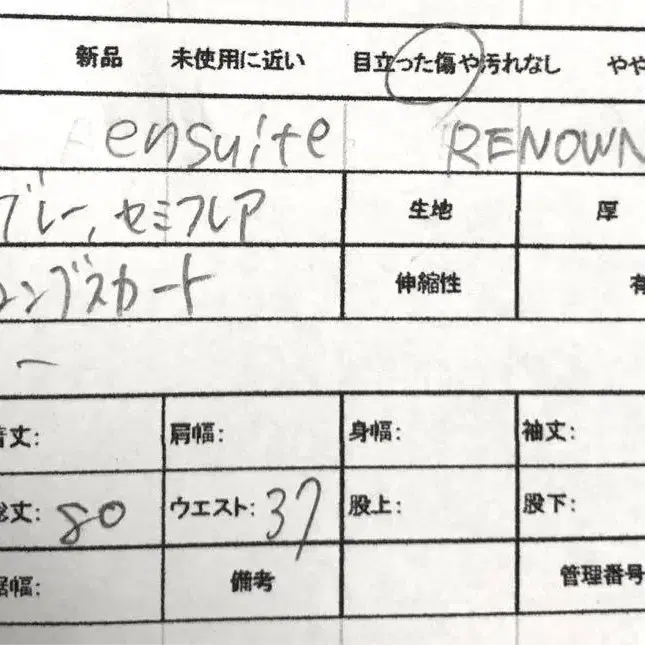 新品 未使用に近い 目立った傷や汚れなし やや
ensuite RENOWN
グレー、セミフレア 生地 厚
ロングスカート 伸縮性 有
ー
着丈: 肩幅: 身幅: 袖丈:
総丈: 80 ウエスト: 37 股上: 股下:
裾幅: 備考 管理番号